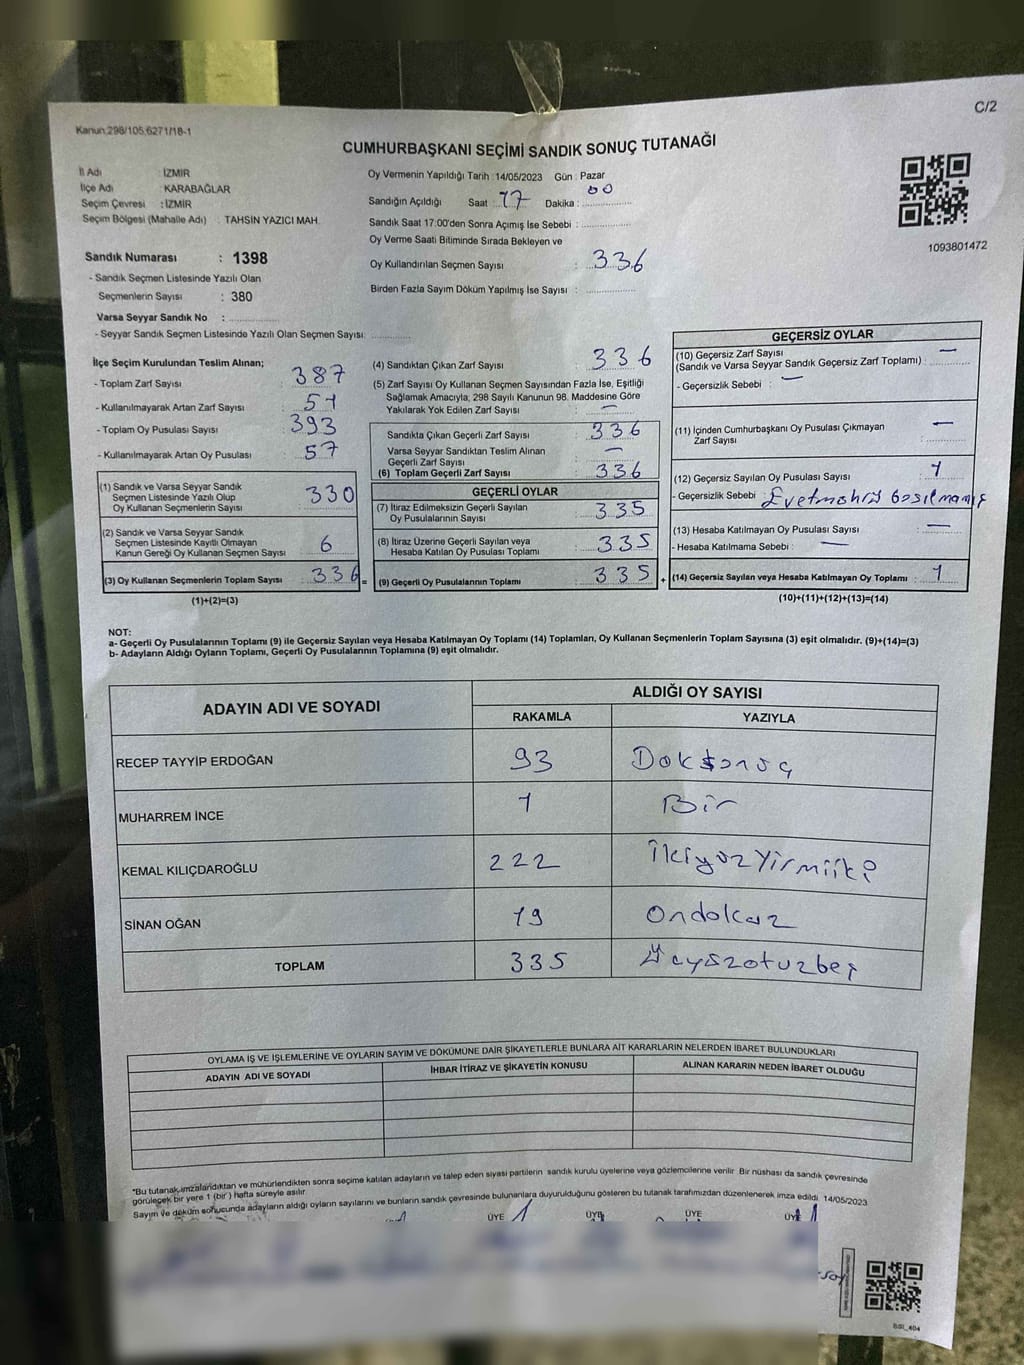 C/2
Kanun,298/105,6271/18-1
CUMHURBAŞKANI SEÇİMİ SANDIK SONUÇ TUTANAĞI
İl Adı : İZMİR
İlçe Adı : KARABAĞLAR
Seçim Çevresi : İZMİR
Seçim Bölgesi (Mahalle Adı) : TAHSİN YAZICI MAH.
Sandık Numarası : 1398
- Sandık Seçmen Listesinde Yazılı Olan
Seçmenlerin Sayısı : 380
Varsa Seyyar Sandık No : ................
- Seyyar Sandık Seçmen Listesinde Yazılı Olan Seçmen Sayısı: ............
Oy Vermenin Yapıldığı Tarih : 14/05/2023 Gün : Pazar
Sandığın Açıldığı Saat : 17 Dakika : 00
Sandık Saat 17:00'den Sonra Açımış İse Sebebi : ................
Oy Verme Saati Bitiminde Sırada Bekleyen ve
Oy Kullandırılan Seçmen Sayısı : 336
Birden Fazla Sayım Döküm Yapılmış İse Sayısı : ................
1093801472
İlçe Seçim Kurulundan Teslim Alınan;
- Toplam Zarf Sayısı : 387
- Kullanılmayarak Artan Zarf Sayısı : 51
- Toplam Oy Pusulası Sayısı : 393
- Kullanılmayarak Artan Oy Pusulası : 57
(1) Sandık ve Varsa Seyyar Sandık
Seçmen Listesinde Yazılı Olup
Oy Kullanan Seçmenlerin Sayısı : 330
(2) Sandık ve Varsa Seyyar Sandık
Seçmen Listesinde Kayıtlı Olmayan
Kanun Gereği Oy Kullanan Seçmen Sayısı : 6
(3) Oy Kullanan Seçmenlerin Toplam Sayısı : 336 =
(1)+(2)=(3)
(4) Sandıktan Çıkan Zarf Sayısı : 336
(5) Zarf Sayısı Oy Kullanan Seçmen Sayısından Fazla İse, Eşitliği
Sağlamak Amacıyla, 298 Sayılı Kanunun 98. Maddesine Göre
Yakılarak Yok Edilen Zarf Sayısı : —
Sandıkta Çıkan Geçerli Zarf Sayısı : 336
Varsa Seyyar Sandıktan Teslim Alınan
Geçerli Zarf Sayısı : —
(6) Toplam Geçerli Zarf Sayısı : 336
GEÇERLİ OYLAR
(7) İtiraz Edilmeksizin Geçerli Sayılan
Oy Pusulalarının Sayısı : 335
(8) İtiraz Üzerine Geçerli Sayılan veya
Hesaba Katılan Oy Pusulası Toplamı : 335
(9) Geçerli Oy Pusulalarının Toplamı : 335 +
GEÇERSİZ OYLAR
(10) Geçersiz Zarf Sayısı
(Sandık ve Varsa Seyyar Sandık Geçersiz Zarf Toplamı) : —
- Geçersizlik Sebebi : —
(11) İçinden Cumhurbaşkanı Oy Pusulası Çıkmayan
Zarf Sayısı : —
(12) Geçersiz Sayılan Oy Pusulası Sayısı : 1
- Geçersizlik Sebebi : Evet mührü basılmamış
(13) Hesaba Katılmayan Oy Pusulası Sayısı : —
- Hesaba Katılmama Sebebi : —
(14) Geçersiz Sayılan veya Hesaba Katılmayan Oy Toplamı : 1
(10)+(11)+(12)+(13)=(14)
NOT:
a- Geçerli Oy Pusulalarının Toplamı (9) ile Geçersiz Sayılan veya Hesaba Katılmayan Oy Toplamı (14) Toplamları, Oy Kullanan Seçmenlerin Toplam Sayısına (3) eşit olmalıdır. (9)+(14)=(3)
b- Adayların Aldığı Oyların Toplamı, Geçerli Oy Pusulalarının Toplamına (9) eşit olmalıdır.
ADAYIN ADI VE SOYADI ALDIĞI OY SAYISI
RAKAMLA YAZIYLA
RECEP TAYYİP ERDOĞAN 93 Doksanüç
MUHARREM İNCE 1 Bir
KEMAL KILIÇDAROĞLU 222 İkiyüzyirmiiki
SİNAN OĞAN 19 Ondokuz
TOPLAM 335 Üçyüzotuzbeş
OYLAMA İŞ VE İŞLEMLERİNE VE OYLARIN SAYIM VE DÖKÜMÜNE DAİR ŞİKAYETLERLE BUNLARA AİT KARARLARIN NELERDEN İBARET BULUNDUKLARI
ADAYIN ADI VE SOYADI İHBAR İTİRAZ VE ŞİKAYETİN KONUSU ALINAN KARARIN NEDEN İBARET OLDUĞU
*Bu tutanak,imzalandıktan ve mühürlendikten sonra seçime katılan adayların ve talep eden siyasi partilerin sandık kurulu üyelerine veya gözlemcilerine verilir Bir nüshası da sandık çevresinde
görülecek bir yere 1 (bir ) hafta süreyle asılır
Sayım ve döküm sonucunda adayların aldığı oyların sayılarını ve bunların sandık çevresinde bulunanlara duyurulduğunu gösteren bu tutanak tarafımızdan düzenlenerek imza edildi. 14/05/2023
ÜYE ÜYE ÜYE ÜYE